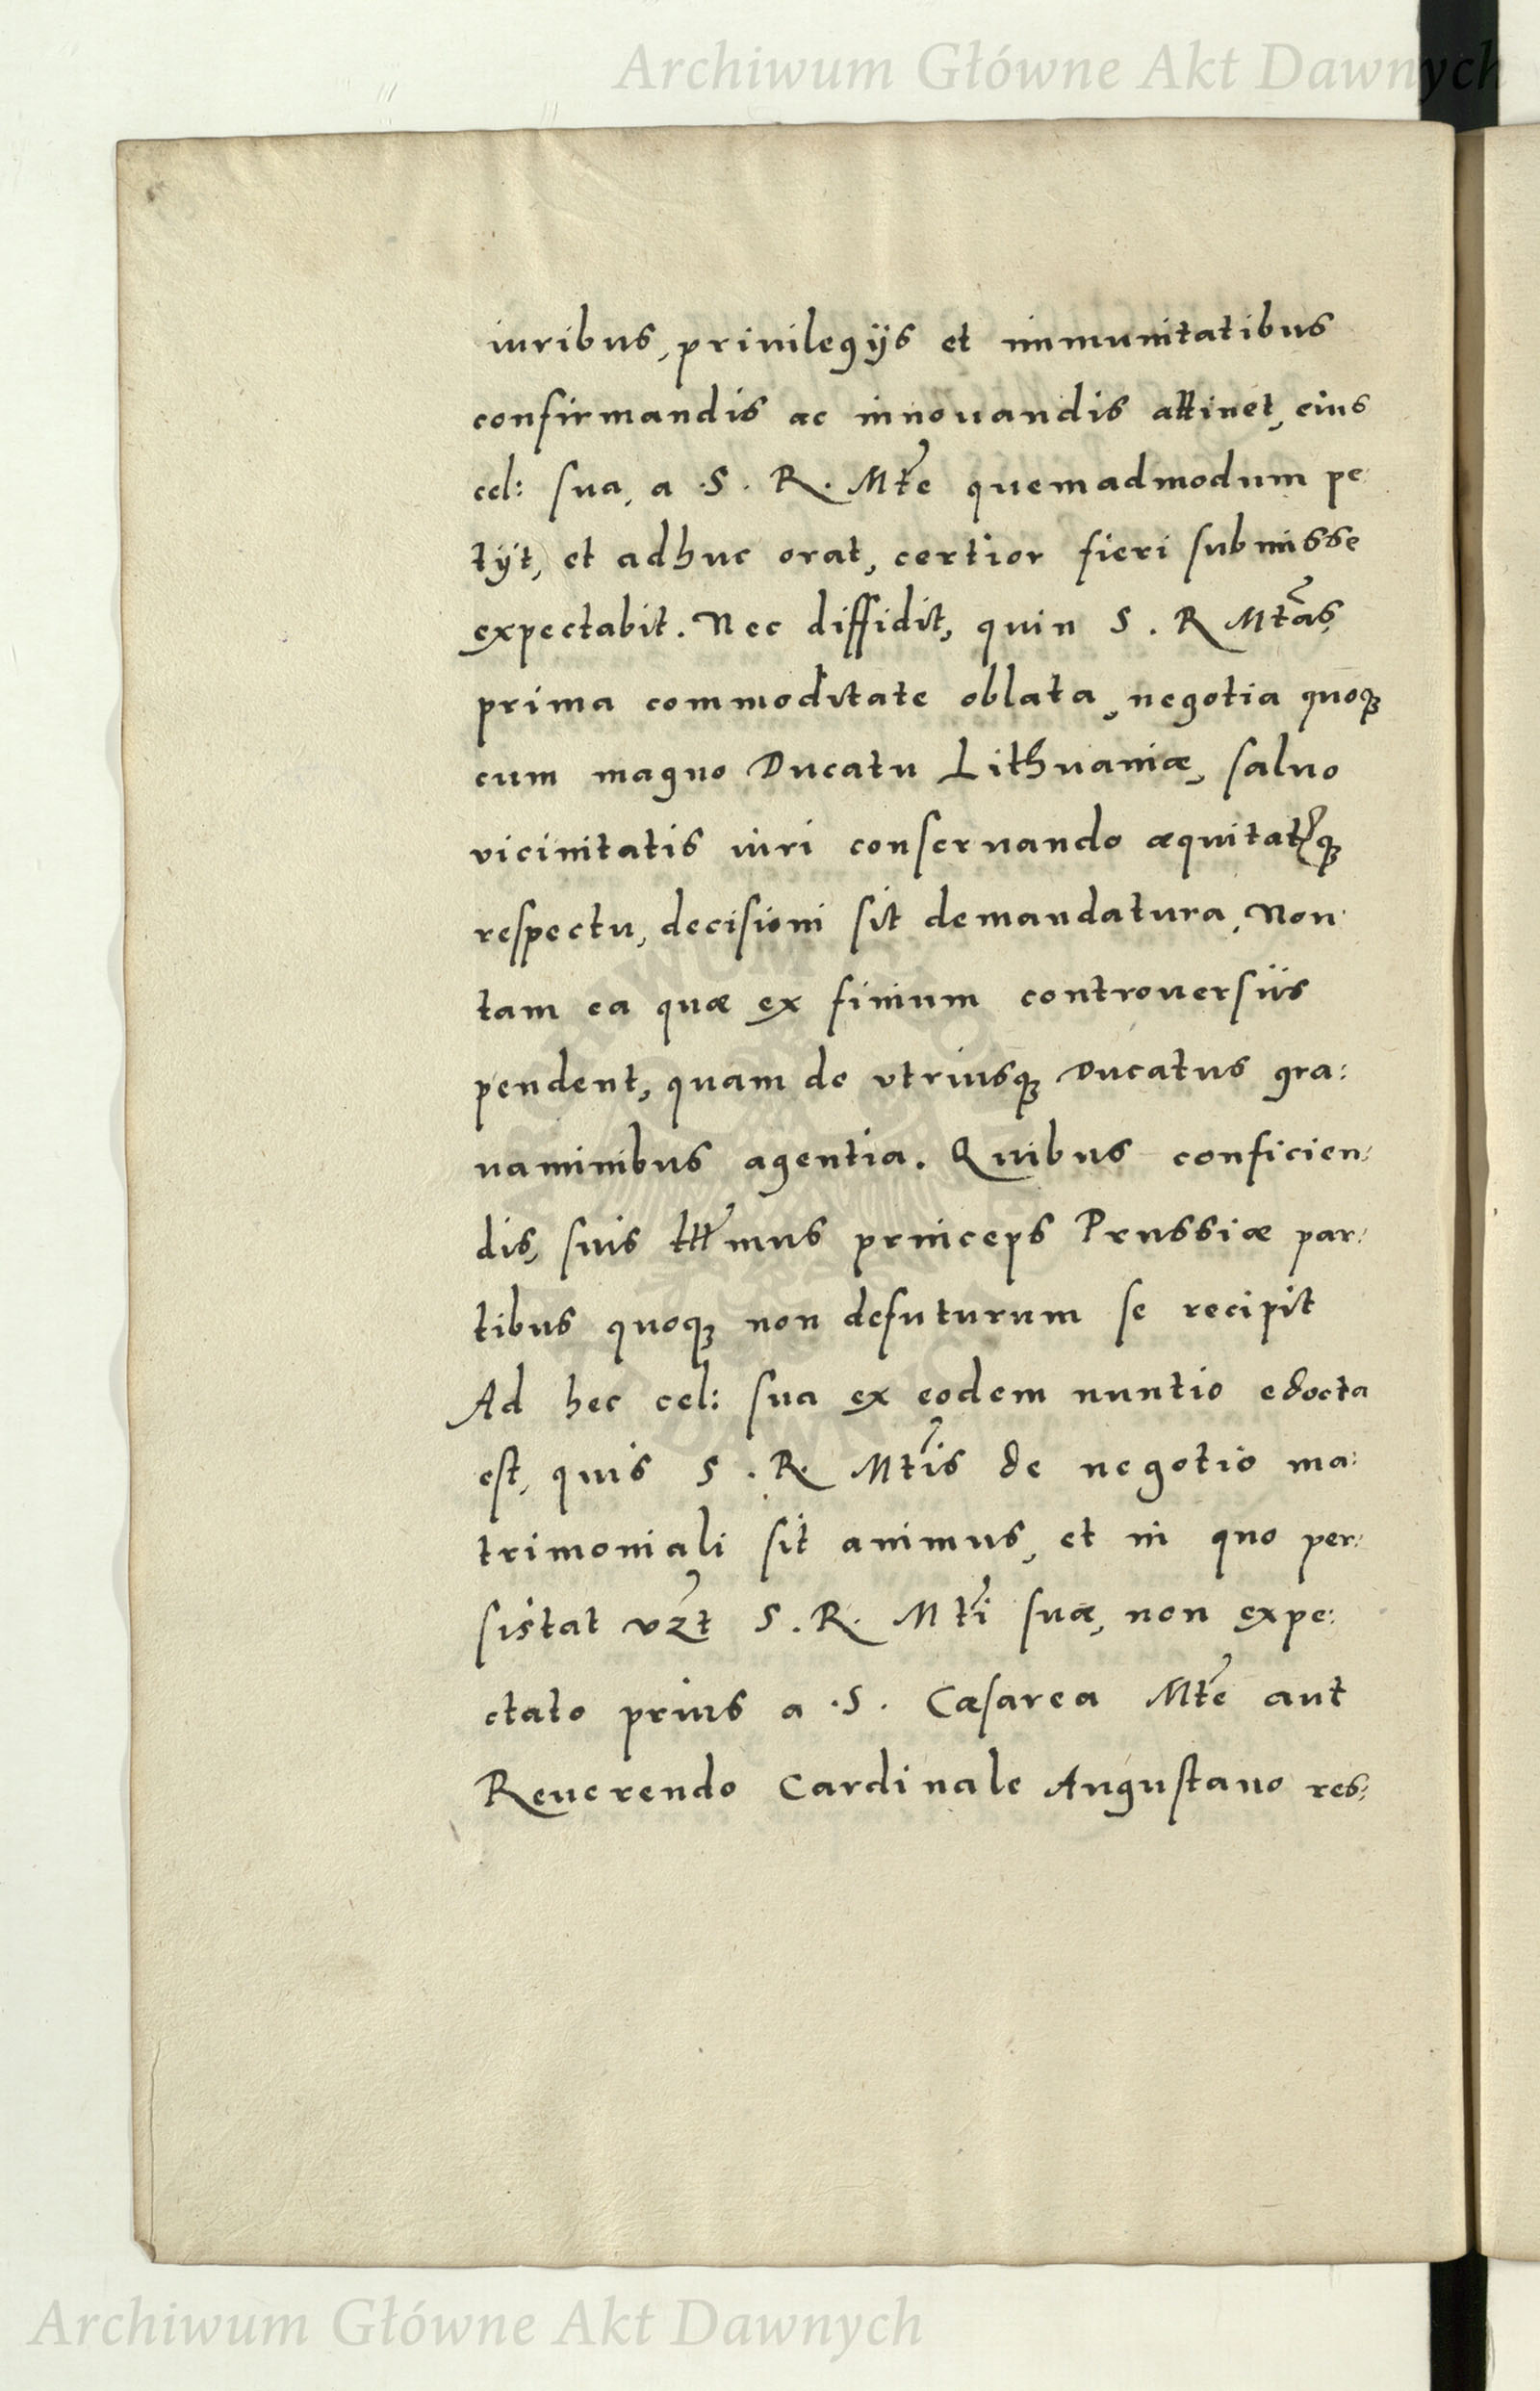 Archiwum Główne Akt Dawnych
iuribus, priuilegijs et immunitatibus
confirmandis ac innouandis attinet, eius
cel: sua, a .S. R. Mte quemadmodum pe
tijt, et adhuc orat, certior fieri submisse
expectabit. Nec diffidit, quin S. R Mtas,
prima commoditate oblata, negotia quoq3
cum magno Ducatu Lithuaniæ, saluo
vicinitatis iuri conseruando æquitatisq3
respectu, decisioni sit demandatura, Non
tam ea quæ ex finium controuersiis
pendent, quam de vtriusq3 Ducatus gra:
uaminibus agentia. Quibus conficien:
dis, suis princeps Prussiæ par:
tibus quoq3 non defuturum se recipit
Ad hec cel: sua ex eodem nuntio edocta
est, quis S. R. Mtis de negotio ma:
trimoniali sit animus, et in quo per:
sistat vzt S. R. Mti suæ, non expe:
ctato prius a .S. Cæsarea Mte aut
Reuerendo Cardinale Augustano res:
Archiwum Główne Akt Dawnych